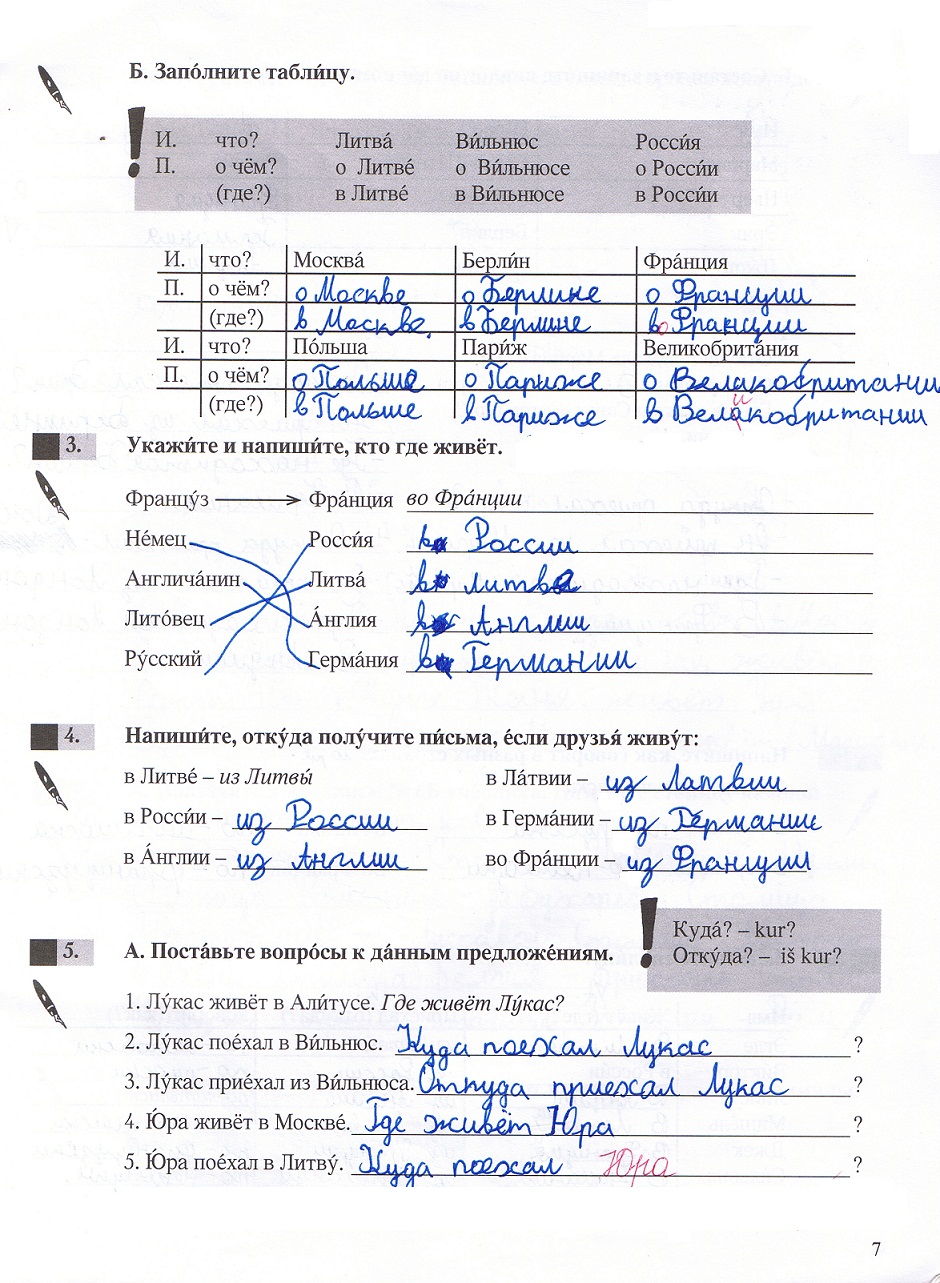 Б. Запо́лните табли́цу.
И. что? Литва́ Ви́льнюс Росси́я
П. о чём? о Литве́ о Ви́льнюсе о Росси́и
(где?) в Литве́ в Ви́льнюсе в Росси́и
И. что? Москва́ Берли́н Фра́нция
П. о чём? о Москве о Берлине о Франции
(где?) в Москве. в Берлине во Франции
И. что? По́льша Пари́ж Великобрита́ния
П. о чём? о Польше о Париже о Велакобритании
(где?) в Польше в Париже в Великобритании
3. Укажи́те и напиши́те, кто где живёт.
Францу́з Фра́нция во Фра́нции
Не́мец Росси́я в России
Англича́нин Литва́ в литве
Лито́вец А́нглия в Англии
Ру́сский Герма́ния в Германии
4. Напиши́те, отку́да полу́чите пи́сьма, е́сли друзья́ живу́т:
в Литве́ – из Литвы́ в Ла́твии – из Латвии
в Росси́и – из России в Герма́нии – из Германии
в А́нглии – из Англии во Фра́нции – из Франции
Куда́? – kur?
5. А. Поста́вьте вопро́сы к да́нным предложе́ниям. Отку́да? – iš kur?
1. Лу́кас живёт в Али́тусе. Где живёт Лу́кас?
2. Лу́кас пое́хал в Ви́льнюс. Куда поехал Лукас ?
3. Лу́кас прие́хал из Ви́льнюса. Откуда приехал Лукас ?
4. Ю́ра живёт в Москве́. Где живёт Юра ?
5. Ю́ра пое́хал в Литву́. Куда поехал Юра ?
7